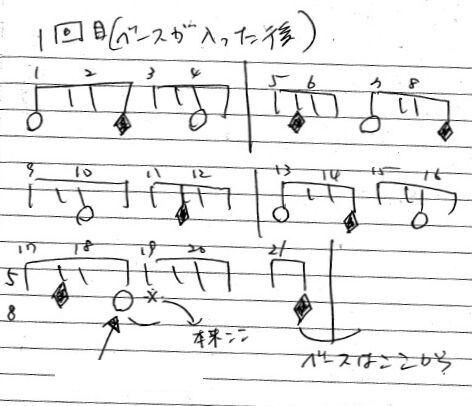 1回目(ベースが入った後)
1 2 3 4 5 6 7 8
9 10 11 12 13 14 15 16
17 18 19 20 21
5
8
本来ここ
ベースはここから